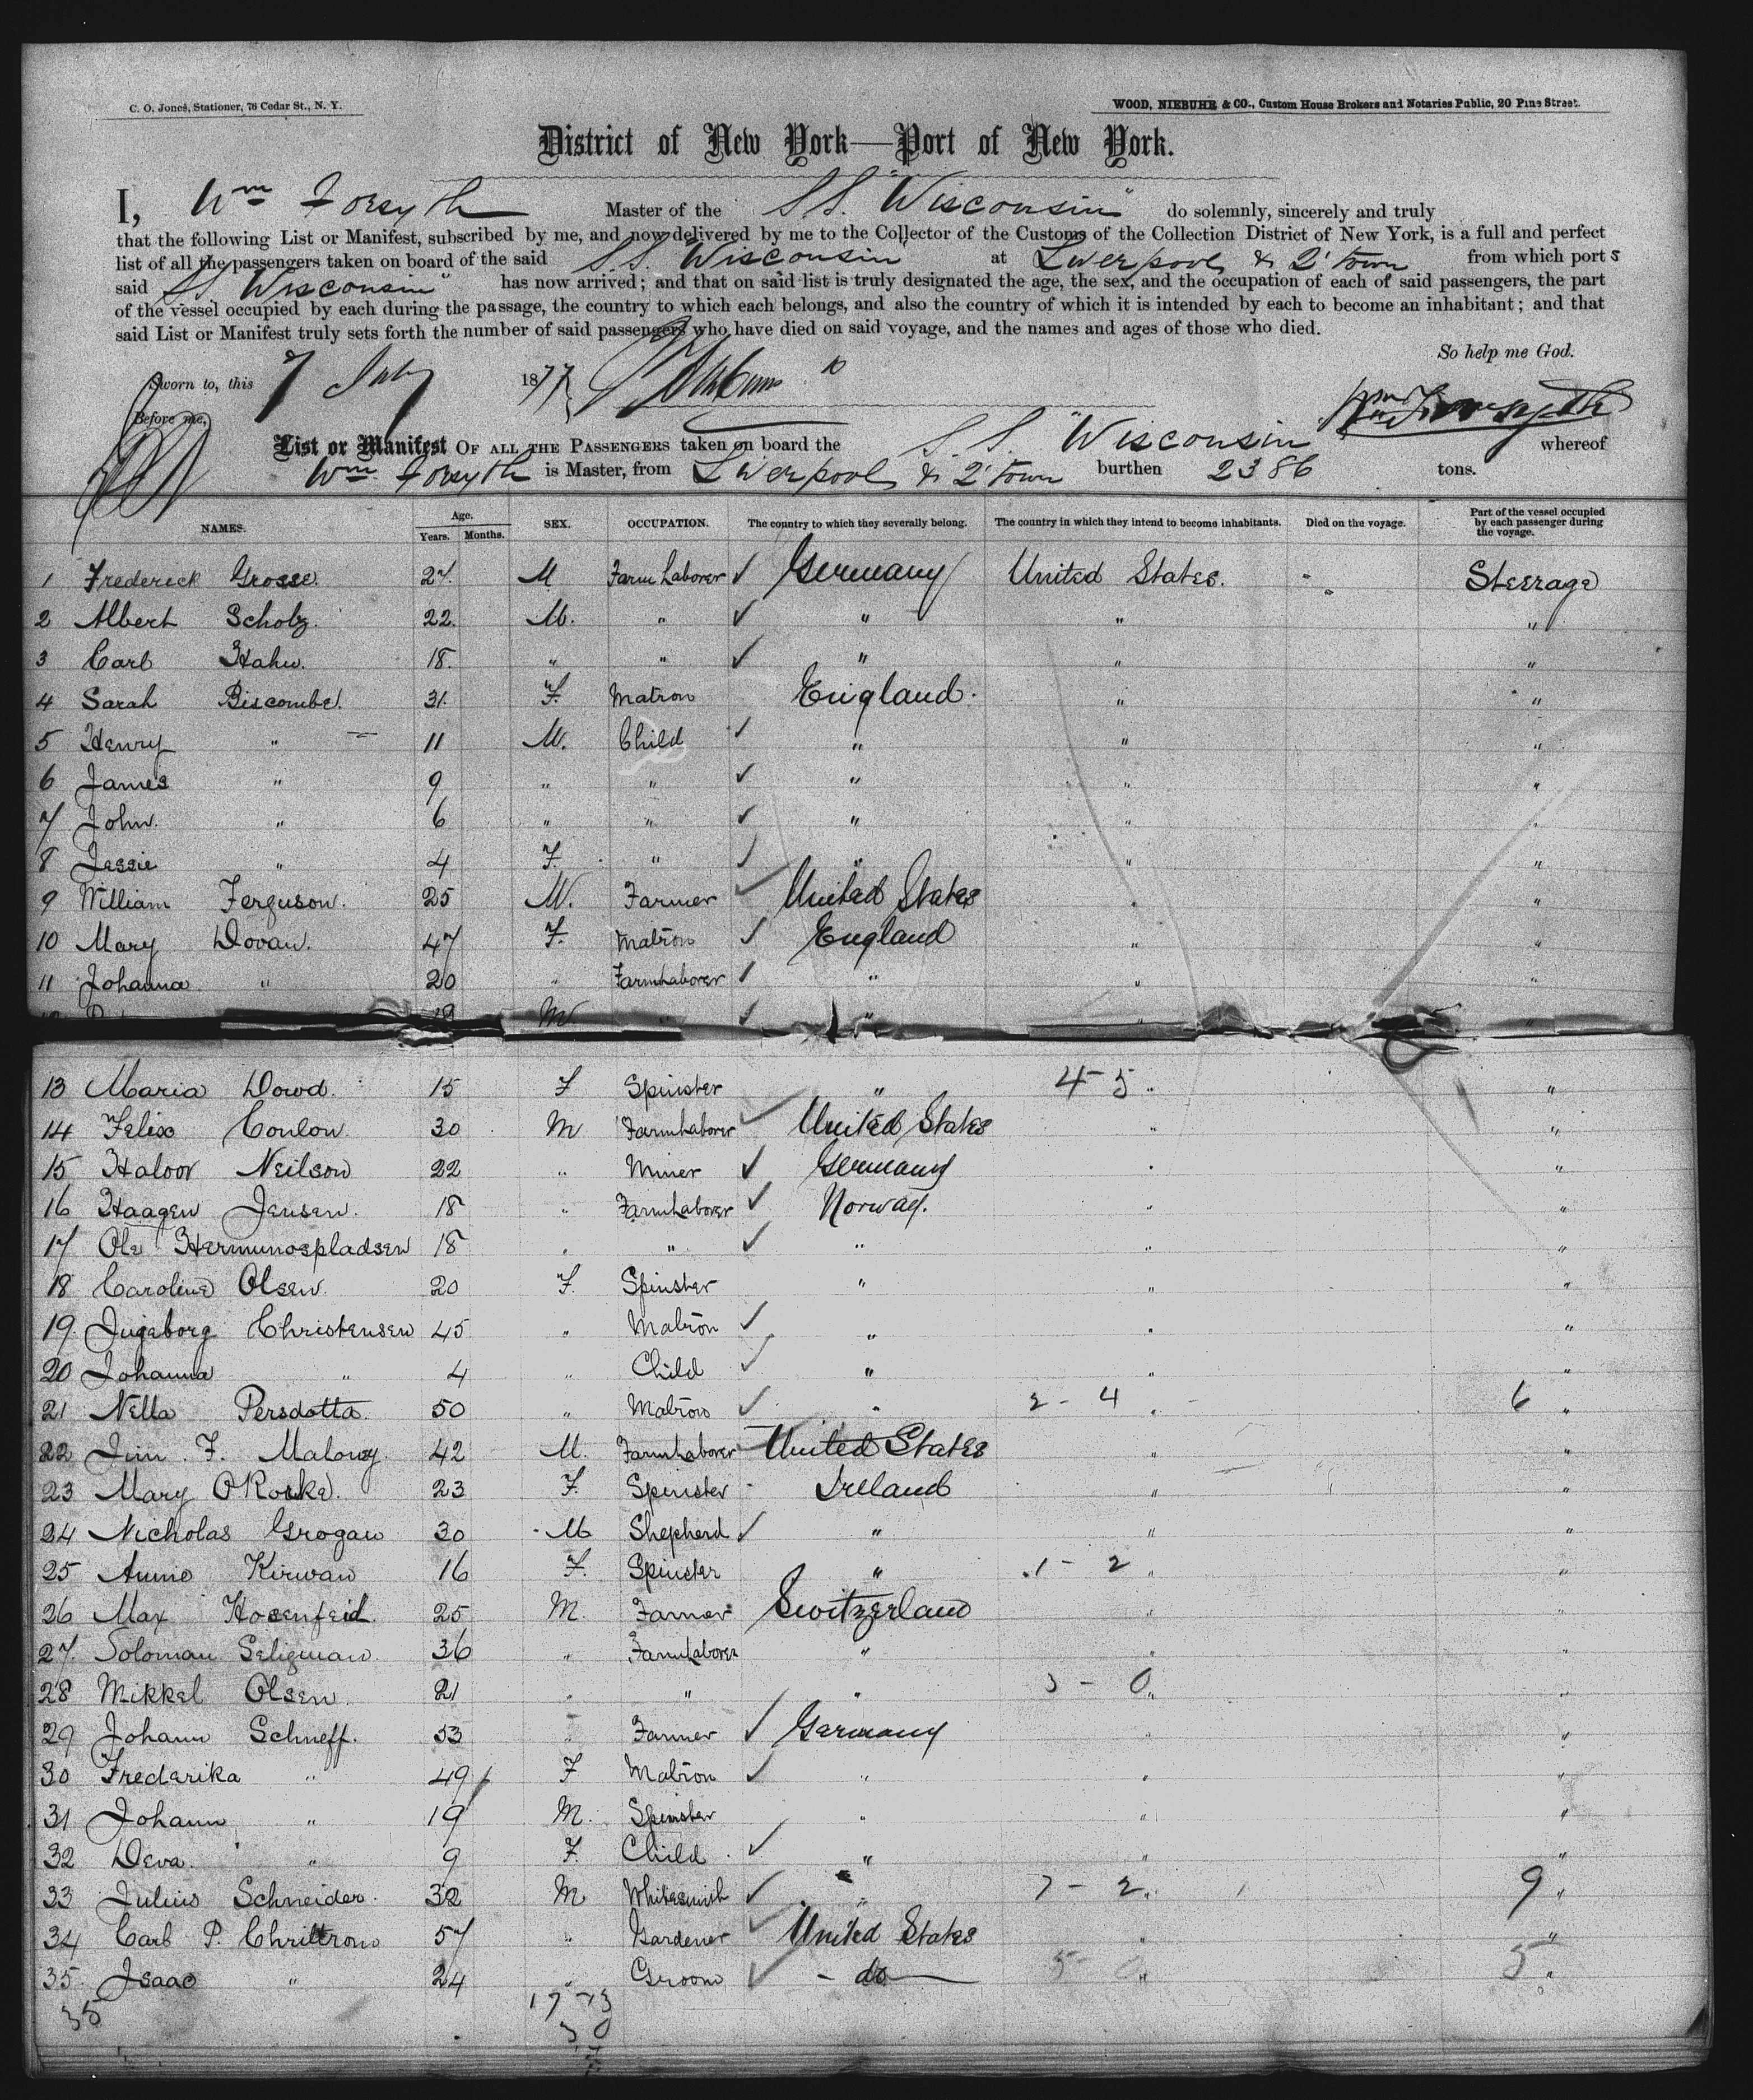 C. O. Jones, Stationer, 76 Cedar St., N. Y.
WOOD, NIEBUHR & CO., Custom House Brokers and Notaries Public, 20 Pine Street.
District of New York—Port of New York.
I, Wm Forsyth Master of the S.S. "Wisconsin" do solemnly, sincerely and truly
that the following List or Manifest, subscribed by me, and now delivered by me to the Collector of the Customs of the Collection District of New York, is a full and perfect
list of all the passengers taken on board of the said S.S. Wisconsin" at Liverpool & Q'town from which ports
said SS Wisconsin" has now arrived; and that on said list is truly designated the age, the sex, and the occupation of each of said passengers, the part
of the vessel occupied by each during the passage, the country to which each belongs, and also the country of which it is intended by each to become an inhabitant; and that
said List or Manifest truly sets forth the number of said passengers who have died on said voyage, and the names and ages of those who died.
So help me God.
Sworn to, this 7 July 1877
Wm Forsyth
Before me,
List or Manifest OF ALL THE PASSENGERS taken on board the S.S. "Wisconsin whereof
Wm Forsyth is Master, from Liverpool & Q'town burthen 2386 tons.
NAMES. Age. Years. Months. SEX. OCCUPATION. The country to which they severally belong. The country in which they intend to become inhabitants. Died on the voyage. Part of the vessel occupied by each passenger during the voyage.
1 Frederick Grosse. 27. M Farm Laborer ✓ Germany United States. " Steerage
2 Albert Scholz. 22. M. " ✓ " " "
3 Carl Hahn. 18. " " ✓ " " "
4 Sarah Biscombe. 31. F. Matron England. " "
5 Henry " 11 M. Child ✓ " " "
6 James " 9 " " ✓ " " "
7 John. " 6 " " ✓ " " "
8 Jessie " 4 F. " ✓ " " "
9 William Ferguson. 25 M. Farmer ✓ United States " "
10 Mary Dovan. 47 F. Matron ✓ England " "
11 Johanna " 20 " Farm Laborer ✓ " " "
M ✓ " " "
13 Maria Dowd. 15 F Spinster " 4-5 " "
14 Felix Conlon. 30 M Farm Laborer ✓ United States " "
15 Haloor Neilson 22 " Miner ✓ Germany " "
16 Haagen Jensen. 18 " Farm Laborer ✓ Norway. " "
17 Ole Hermunospladsen 18 " " ✓ " " "
18 Caroline Olsen. 20 F. Spinster " " "
19. Ingeborg Christensen 45 " Matron ✓ " " "
20 Johanna " 4 " Child ✓ " " "
21 Nella Persdotta. 50 " Matron ✓ " 2-4 " 6 "
22 Jim. F. Malony. 42 M. Farm Laborer United States " "
23 Mary O'Rorke. 23 F. Spinster Ireland " "
24 Nicholas Grogan 30 M Shepherd ✓ " " "
25 Annie Kirwan 16 F. Spinster " 1-2 " "
26 Max Hosenfeid 25 M. Farmer Switzerland " "
27. Soloman Seligman. 36 " Farm Laborer " " "
28 Mikkel Olsen. 21 " " " 3-0 " "
29 Johann Schneff. 53 " Farmer ✓ Germany " "
30 Frederika " 49 F Matron ✓ " " "
31 Johann " 19 M. Spinster " " "
32 Deva. " 9 F. Child ✓ " " "
33 Julius Schneider. 32 M Whitesmith ✓ " 7-2 " 9 "
34 Carl P. Chriltrom 57 " Gardener ✓ United States " "
35. Isaac " 24 " Groom ✓ - do - 5-0 " 5 "
35 17-13
30